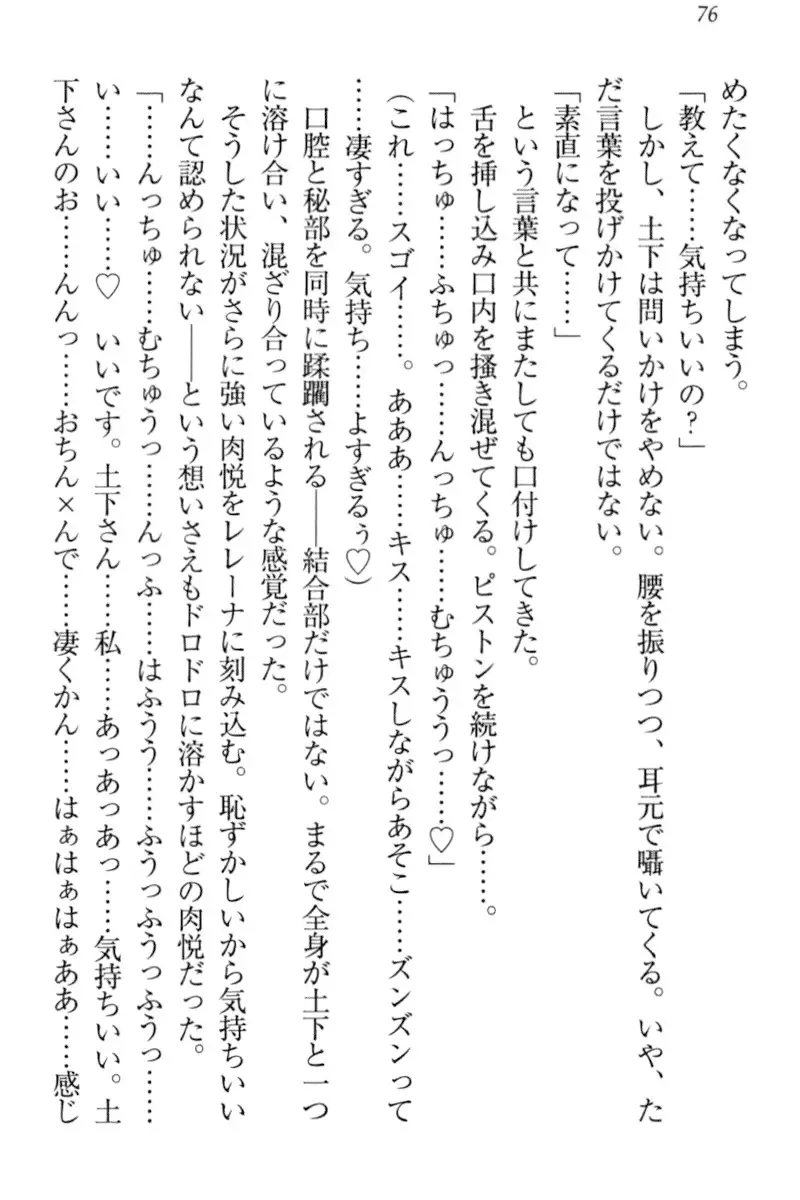 76
めたくなくなってしまう。
「教えて……気持ちいいの？」
しかし、土下は問いかけをやめない。腰を振りつつ、耳元で囁いてくる。いや、た
だ言葉を投げかけてくるだけではない。
「素直になって……」
という言葉と共にまたしても口付けしてきた。
舌を挿し込み口内を掻き混ぜてくる。ピストンを続けながら……。
「はっちゅ……ふちゅっ……んっちゅ……むちゅううっ……♡」
（これ……スゴイ……。あああ……キス……キスしながらあそこ……ズンズンって
……凄すぎる。気持ち……よすぎるぅ♡）
口腔と秘部を同時に蹂躙される――結合部だけではない。まるで全身が土下と一つ
に溶け合い、混ざり合っているような感覚だった。
そうした状況がさらに強い肉悦をレレーナに刻み込む。恥ずかしいから気持ちいい
なんて認められない――という想いさえもドロドロに溶かすほどの肉悦だった。
「……んっちゅ……むちゅうっ……んっふ……はふうう……ふうっふうっふうっ……
い……いい……♡　いいです。土下さん……私……あっあっあっ……気持ちいい。土
下さんのお……んんっ……おちん×んで……凄くかん……はぁはぁはぁああ……感じ